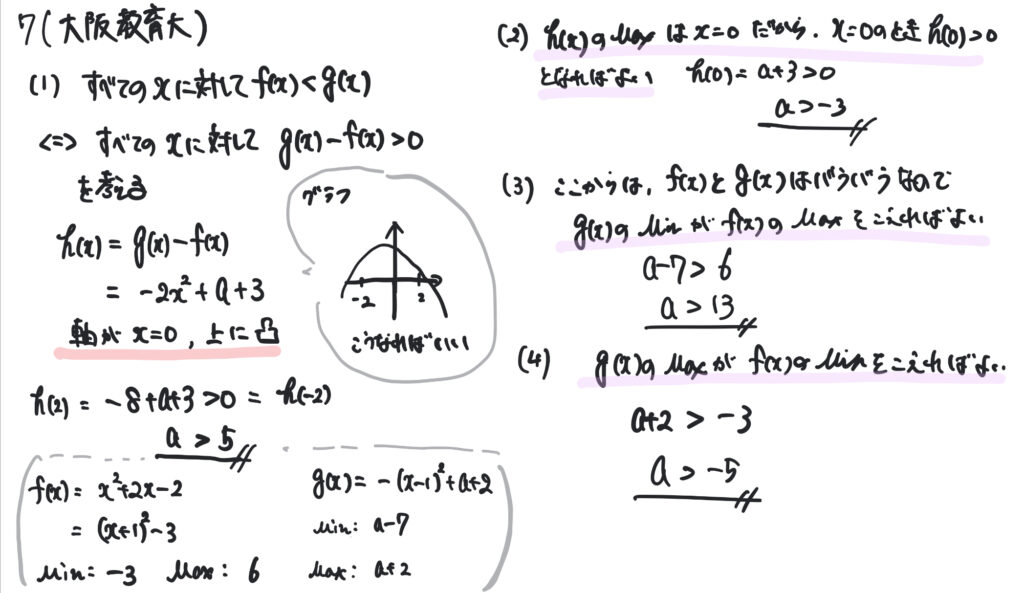 7(大阪教育大)
(1) すべてのxに対してf(x)<g(x)
<=> すべてのxに対して g(x)-f(x)>0
を考える
h(x) = g(x)-f(x)
= -2x²+a+3
軸がx=0, 上に凸
グラフ
-2 2
こうなればいい
h(2) = -8+a+3>0 = h(-2)
a > 5
f(x) = x²+2x-2
= (x+1)²-3
Min: -3 Max: 6
g(x) = -(x-1)²+a+2
Min: a-7
Max: a+2
(2) h(x)のMaxはx=0だから. x=0のときh(0)>0
となればよい h(0)=a+3>0
a>-3
(3) ここからは, f(x)とg(x)はバラバラなので
g(x)のMinがf(x)のMaxをこえればよい
a-7> 6
a > 13
(4) g(x)のMaxがf(x)のMinをこえればよい.
a+2 > -3
a > -5